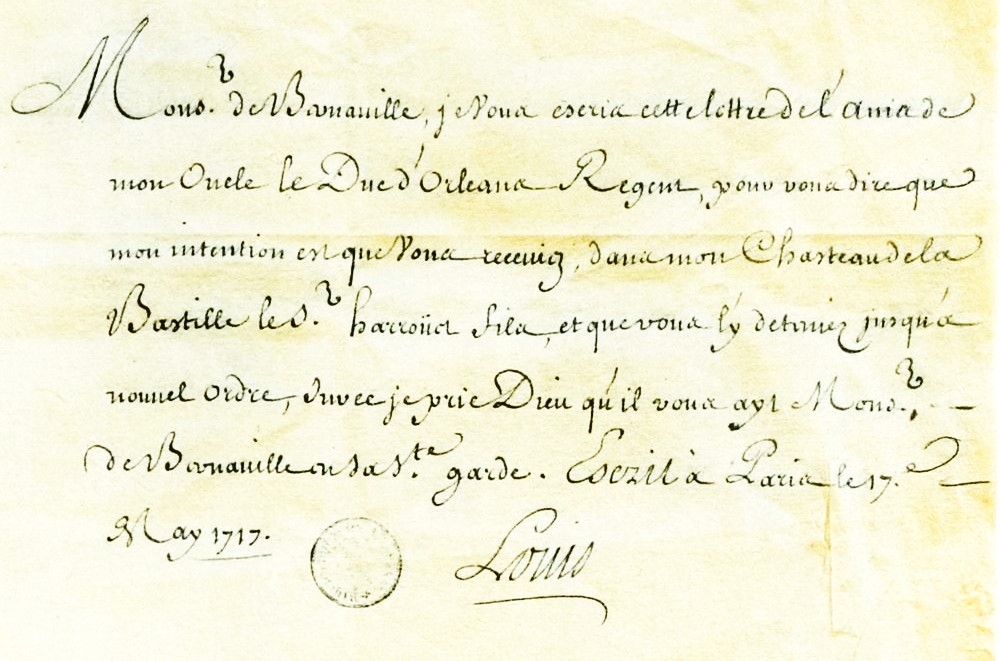 Mons.r de Bernaville, je vous escris cette lettre de l'avis de
mon Oncle le Duc d'Orleans Regent, pour vous dire que
mon intention est que vous receviez, dans mon Chasteau de la
Bastille le S.r harroüet fils, et que vous l'y deteniez jusqu'à
nouvel Ordre, Surce je prie Dieu qu'il vous ayt Mons.r
de Bernaville en sa S.te garde. Escrit à Paris le 17.e
May 1717.
Louis